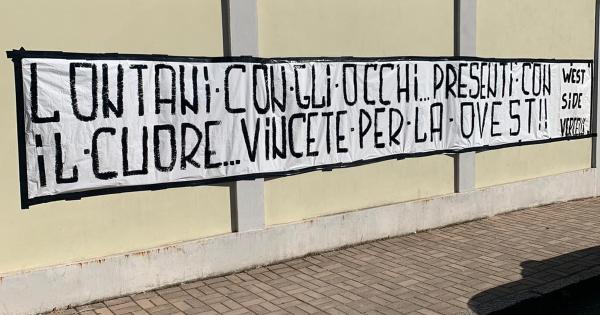 LONTANi·CON·GLI·OCCHI...PRESENTI·CON
iL·CUORE...VINCETE·PER·LA·OVEST!!
WEST
SIDE